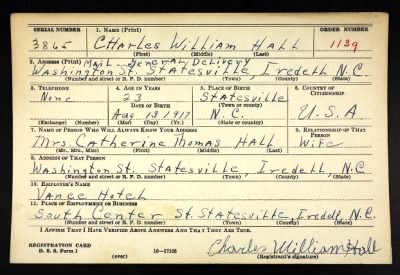 SERIAL NUMBER 1. NAME (Print) ORDER NUMBER
3865 CHARLES WILLIAM HALL 1139
(First) (Middle) (Last)
2. ADDRESS (Print) Mail - General Delivery
Washington St. Statesville Iredell N.C.
(Number and street or R. F. D. number) (Town) (County) (State)
3. TELEPHONE 4. AGE IN YEARS 5. PLACE OF BIRTH 6. COUNTRY OF CITIZENSHIP
None 23 Statesville
DATE OF BIRTH (Town or county)
Aug 13 1917 N.C. U.S.A
(Exchange) (Number) (Mo.) (Day) (Yr.) (State or country)
7. NAME OF PERSON WHO WILL ALWAYS KNOW YOUR ADDRESS 8. RELATIONSHIP OF THAT PERSON
Mrs Catherine Thomas HALL Wife
(Mr., Mrs., Miss) (First) (Middle) (Last)
9. ADDRESS OF THAT PERSON
Washington St. Statesville Iredell N.C.
(Number and street or R. F. D. number) (Town) (County) (State)
10. EMPLOYER'S NAME
Vance Hotel
11. PLACE OF EMPLOYMENT OR BUSINESS
South Center St. Statesville, Iredell, N.C.
(Number and street or R. F. D. number) (Town) (County) (State)
I AFFIRM THAT I HAVE VERIFIED ABOVE ANSWERS AND THAT THEY ARE TRUE.
REGISTRATION CARD Charles William Hall
D. S. S. Form 1 (over) 16—17105 (Registrant's signature)